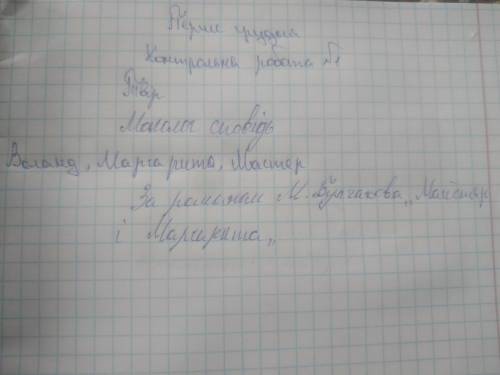 Перше грудня
Контрольна робота №1
Твір
Монолог сповідь
Воланд, Маргарита, Мастер
За романом М. Булгакова „Майстер
і Маргарита„